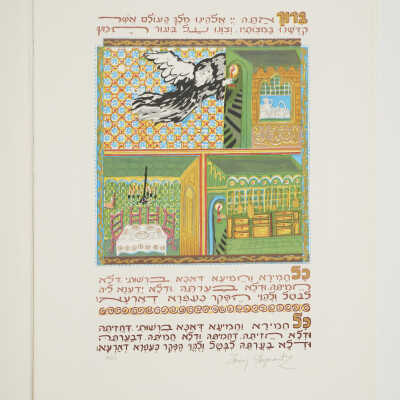 ברוך אתה יי אלהינו מלך העולם אשר
קדשנו במצותיו וצונו על בעור חמץ
כל חמירא וחמיעא דאכא ברשותי דלא
חמיתה ודלא בערתה ודלא ידענא ליה
לבטל ולהוי הפקר כעפרא דארעא
כל חמירא וחמיעא דאכא ברשותי דחזיתה
ודלא חזיתה דחמיתה ודלא חמיתה דבערתה
ודלא בערתה לבטל ולהוי הפקר כעפרא דארעא